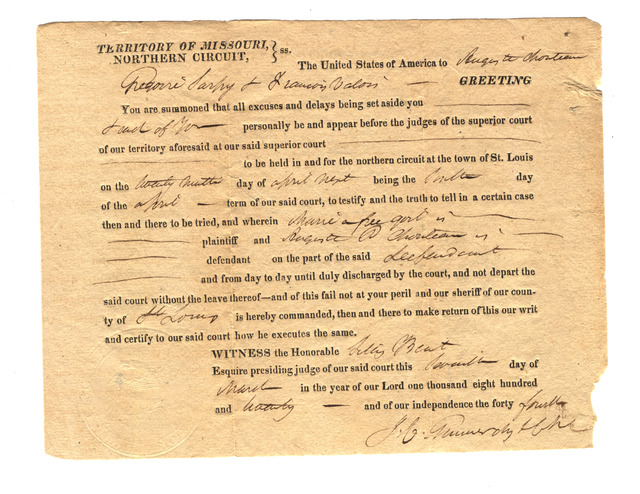 TERRITORY OF MISSOURI, } ss.
NORTHERN CIRCUIT,
The United States of America to Auguste Chouteau
Gregoire Sarpy & Francois Valois — GREETING
You are summoned that all excuses and delays being set aside you
& each of you personally be and appear before the judges of the superior court
of our territory aforesaid at our said superior court
to be held in and for the northern circuit at the town of St. Louis
on the day of april next being the day
of the april term of our said court, to testify and the truth to tell in a certain case
then and there to be tried, and wherein Marie a free girl is
plaintiff and Auguste P Chouteau is
defendant on the part of the said Defendant
and from day to day until duly discharged by the court, and not depart the
said court without the leave thereof—and of this fail not at your peril and our sheriff of our coun-
ty of St Louis is hereby commanded, then and there to make return of this our writ
and certify to our said court how he executes the same.
WITNESS the Honorable Silas Bent
Esquire presiding judge of our said court this Seventh day of
March in the year of our Lord one thousand eight hundred
and twenty — and of our independence the forty fourth